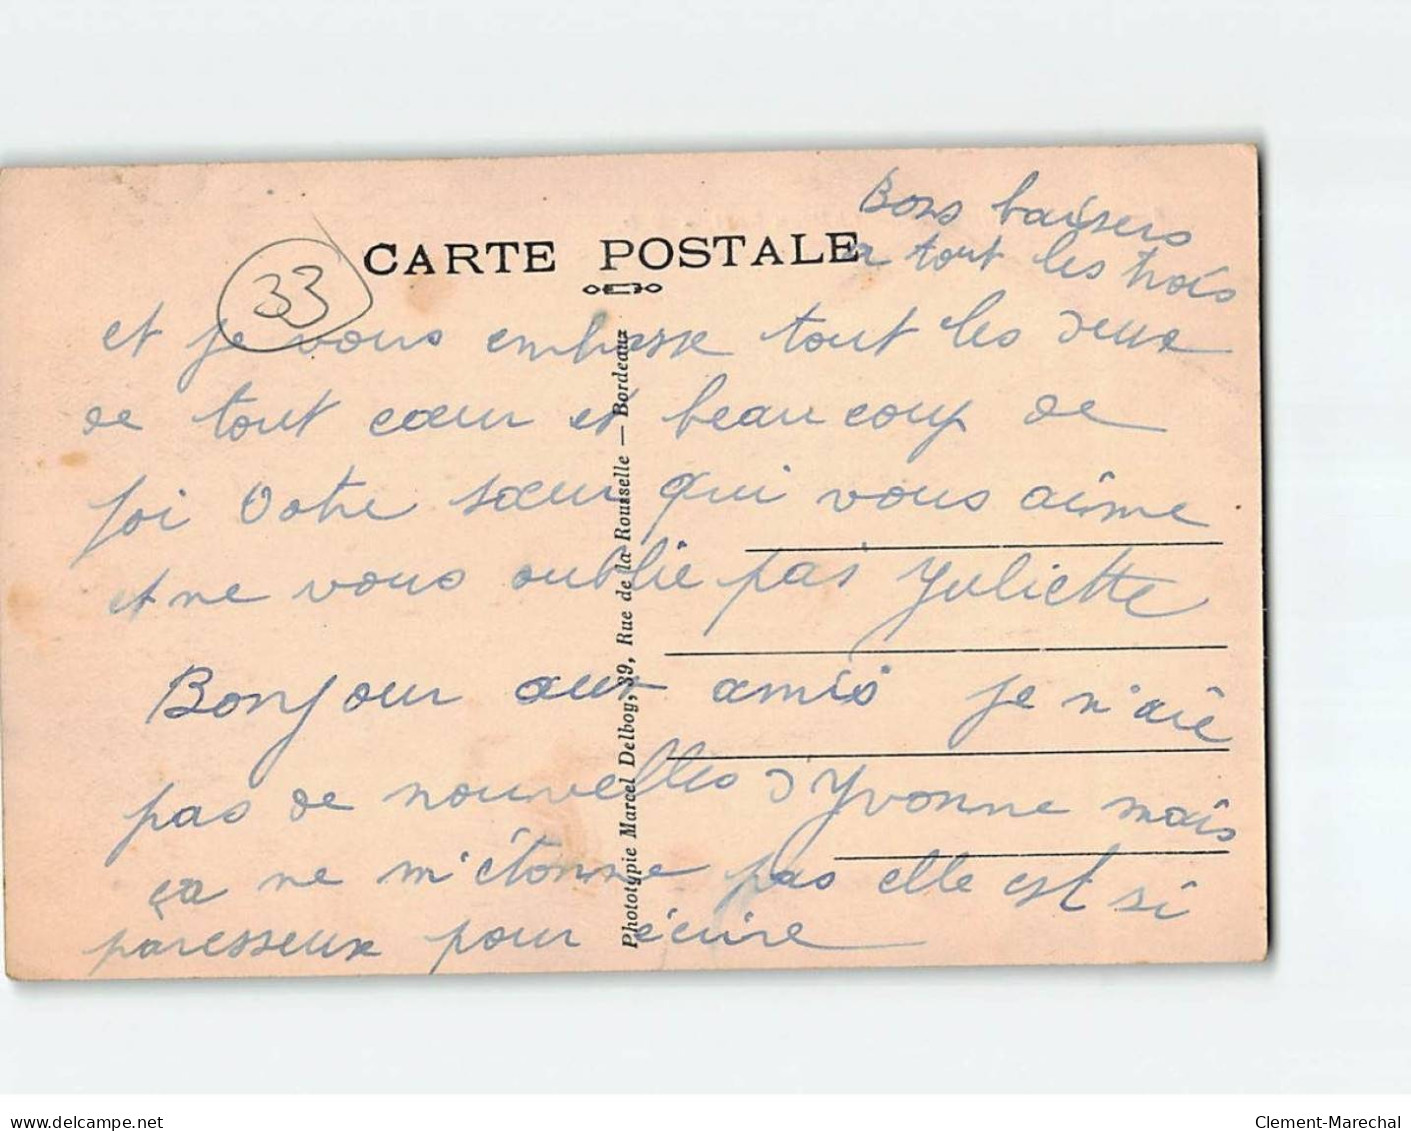 Bons baisers
a tout les trois
CARTE POSTALE
33
et je vous embrasse tout les deux
de tout cœur et beaucoup de
foi Votre sœur qui vous aime
et ne vous oublie pas Juliette
Bonjour aux amis je n'aie
pas de nouvelles d'Yvonne mais
ça ne m'étonne pas elle est si
paresseuse pour écrire
Phototypie Marcel Delboy, 39, Rue de la Rousselle — Bordeaux
www.delcampe.net
Clement-Marechal